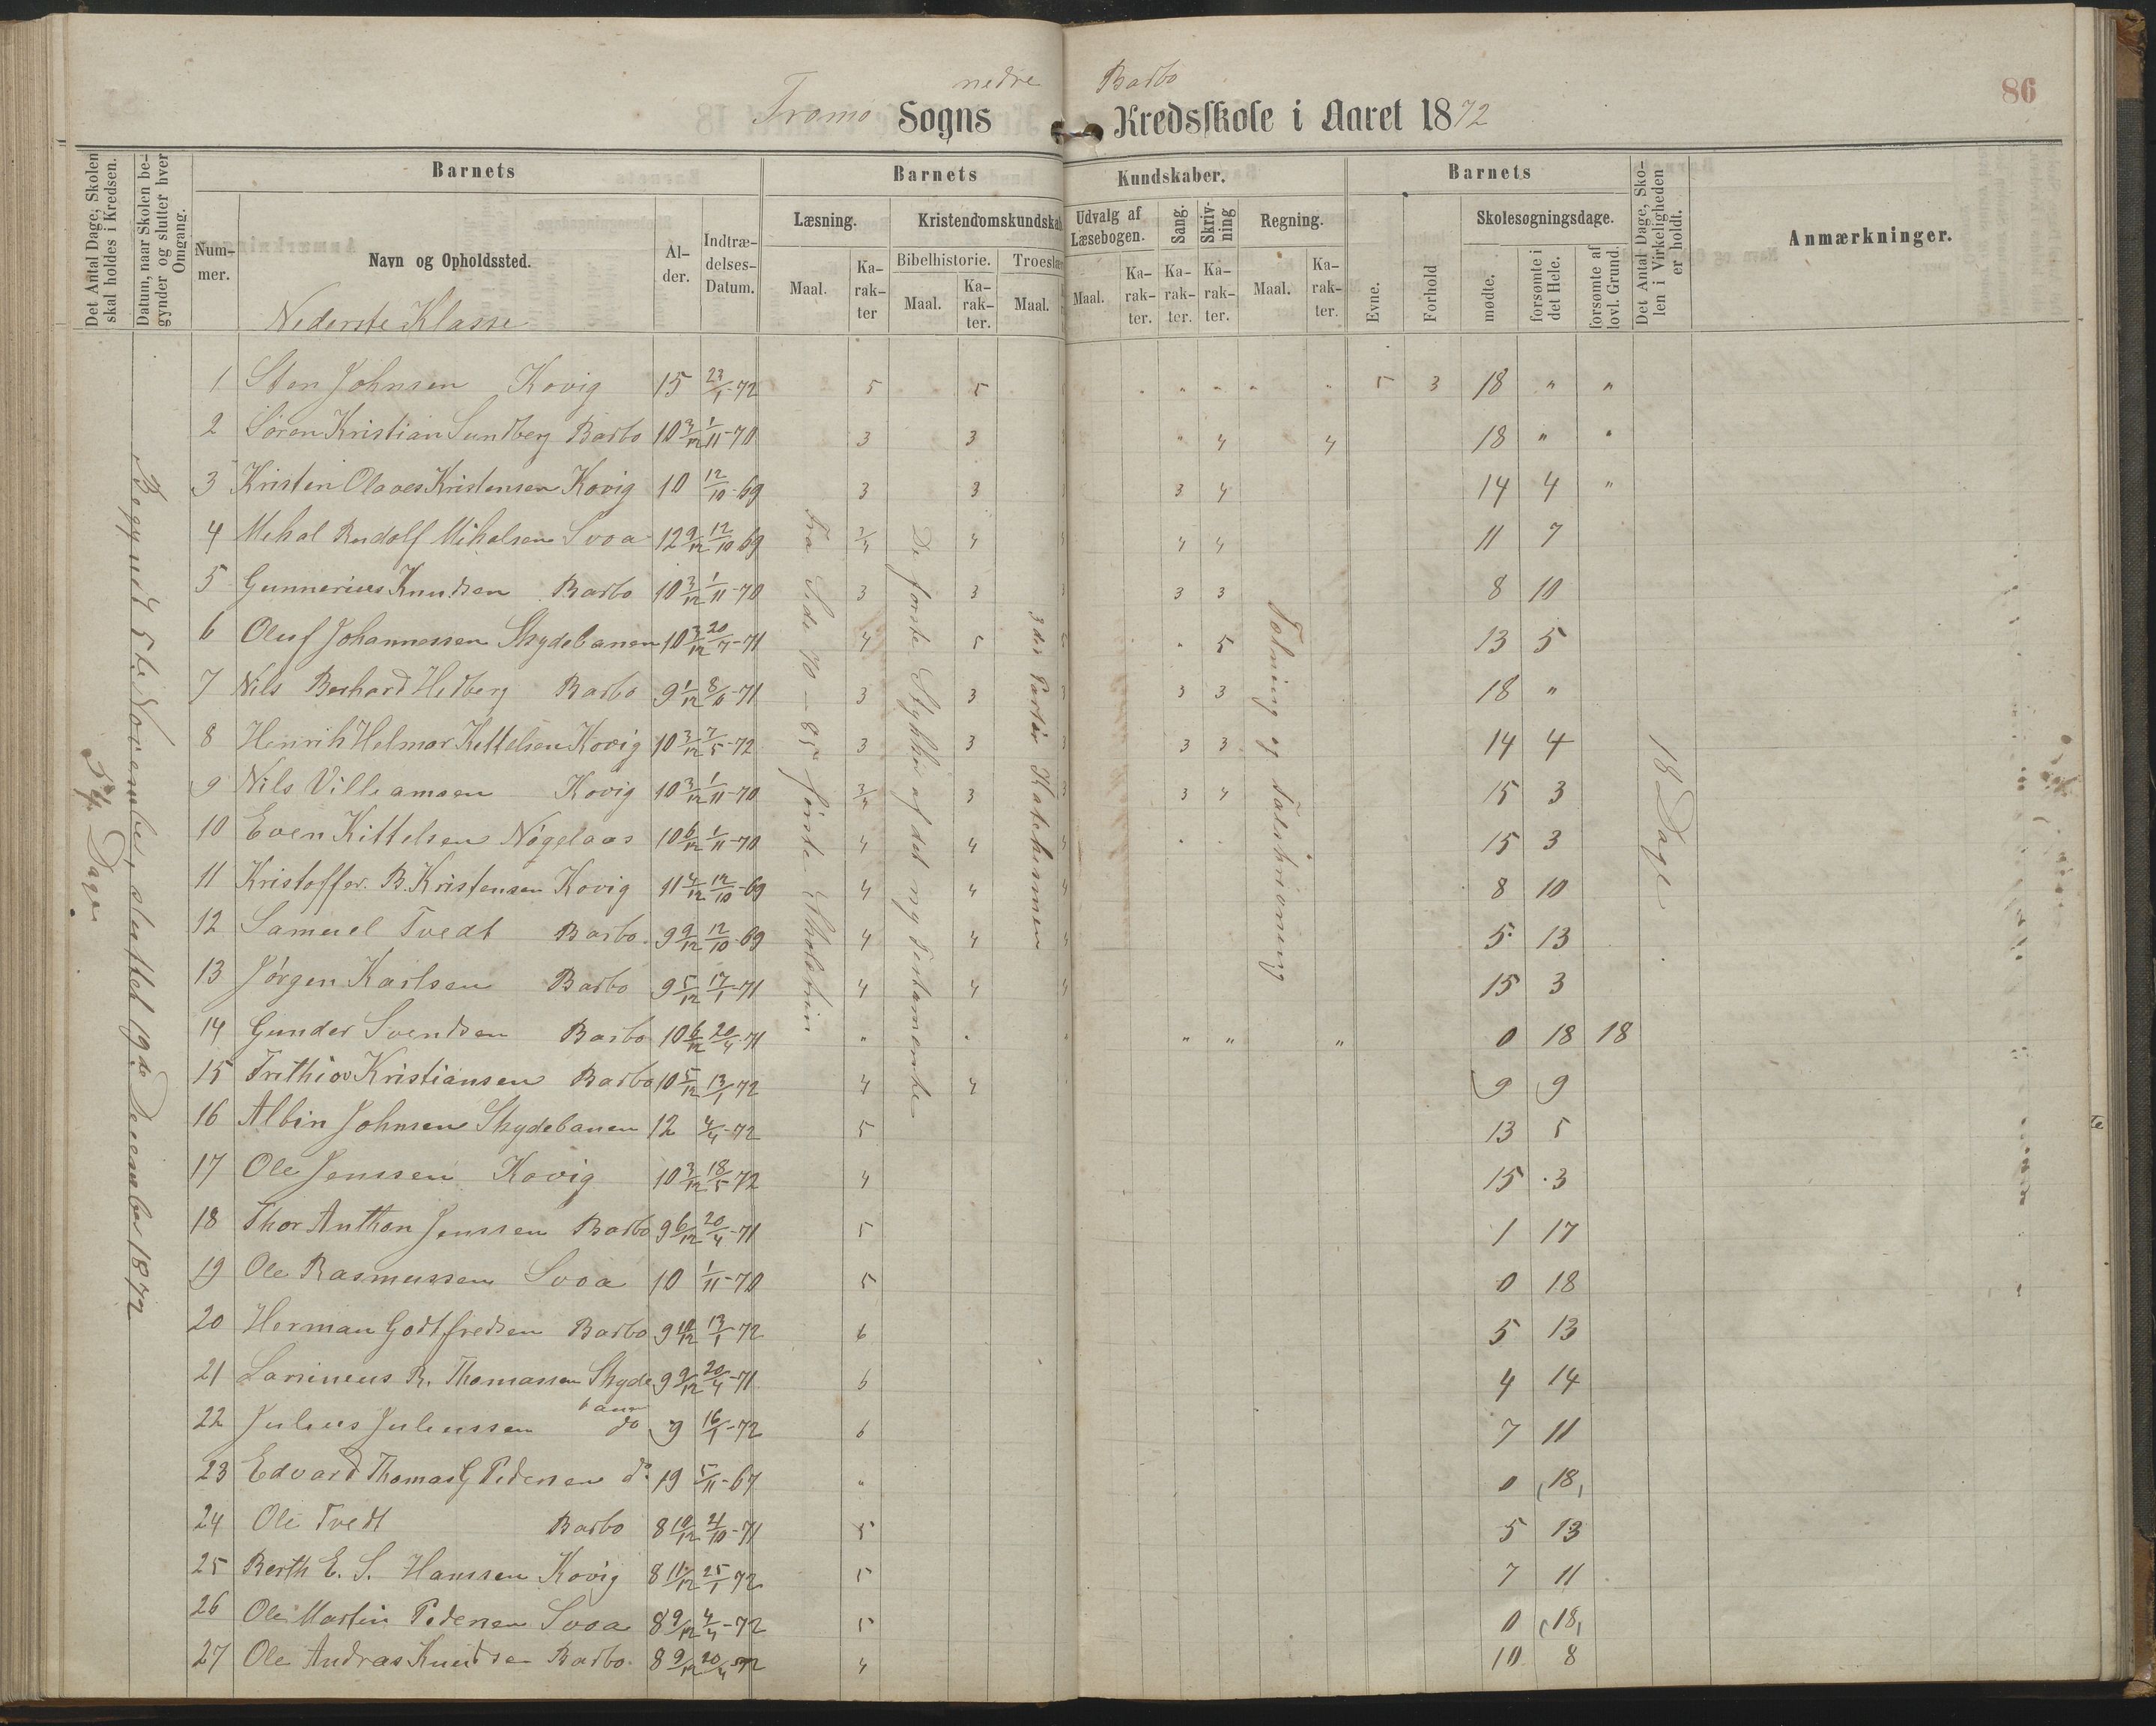 nedre Barbo
86
Tromø Sogns Kredsskole i Aaret 1872
Det Antal Dage, Skolen skal holdes i Kredsen.
Datum, naar Skolen begynder og slutter hver Omgang.
Barnets
Barnets Kundskaber.
Barnets
Det Antal Dage, Skolen i Virkeligheden er holdt.
Anmærkninger.
Nummer.
Navn og Opholdssted.
Alder.
Indtrædelses-Datum.
Læsning.
Kristendomskundskab
Udvalg af Læsebogen.
Sang.
Skrivning
Regning.
Evne.
Forhold
Skolesøgningsdage.
Maal.
Karakter
Bibelhistorie.
Troeslær
Maal.
Karakter.
Maal.
Maal.
Karakter.
Karakter.
Karakter.
Maal.
Karakter.
mødte.
forsømte i det Hele.
forsømte af lovl. Grund.
Nederste Klasse
1 Sten Johnsen Kovig 15 23/1-72 5 5 " " " " 5 3 18 " "
2 Søren Kristian Sundberg Barbo 10 3/12 1/11-70 3 3 " 4 4 18 " "
3 Kristen Olaves Kristensen Kovig 10 12/10-69 3 3 3 4 14 4 "
4 Mihal Rudolf Mihalsen Svoa 12 9/12 12/10 69 3/4 4 4 4 11 7
5 Gunnerius Knudsen Barbo 10 3/12 1/11-70 3 3 3 3 8 10
6 Oluf Johannessen Skydebanen 10 3/12 20/4-71 4 5 " 5 13 5
7 Nils Berhard Hedberg Barbo 9 1/12 8/6-71 3 3 3 3 18 "
8 Henrik Helmar Kettelsen Kovig 10 3/12 7/5-72 3 3 3 3 14 4
9 Nils Villiamsen Kovig 10 3/12 1/11-70 3/4 3 3 4 15 3
10 Even Kittelsen Nøgelaas 10 6/12 1/11-70 4 4 " " 15 3
11 Kristoffer B. Kristensen Kovig 11 4/12 12/10-69 4 4 8 10
12 Samuel Tvedt Barbo 9 9/12 12/10-69 4 4 5 13
13 Jørgen Karlsen Barbo 9 5/12 17/1-71 4 4 15 3
14 Gunder Svendsen Barbo 10 6/12 20/4-71 " " " " " 0 18 18
15 Frithiov Kristiansen Barbo 10 5/12 13/1-72 4 4 9 9
16 Albin Johnsen Skydebanen 12 4/4-72 5 13 5
17 Ole Jenssen Kovig 10 3/12 18/5-72 4 15 3
18 Thor Anthon Jenssen Barbo 9 6/12 20/4-71 5 1 17
19 Ole Rasmussen Svoa 10 1/11-70 5 0 18
20 Herman Godtfredsen Barbo 9 10/12 13/1-72 6 5 13
21 R. Thomassen Skydebane 9 9/12 20/4-71 6 4 14
22 Julius Juliussen do 9 16/1-72 6 7 11
23 Edvard Thomas G Pedersen do 19 5/11-67 " 0 (18)
24 Ole Tvedt Barbo 8 10/12 21/10-71 5 5 13
25 Berth E. S. Hanssen Kovig 8 11/12 25/1-72 5 7 11
26 Ole Martin Pedersen Svoa 8 9/12 4/4-72 5 0 (18)
27 Ole Andras Knudsen Barbo 8 9/12 20/4-72 4 10 8
54 Dage
Begyndt 5te November, sluttet 19de December 1872
Fra Side 70-85 første
De første Stykker af det ny Testamente
3die Part Katekismen
Tælning og Talskrivning
18 Dage